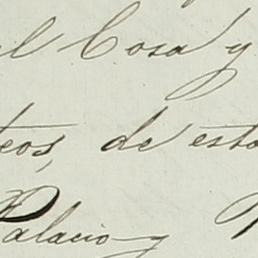 al Cosa y
teos, de esta
Palacio y